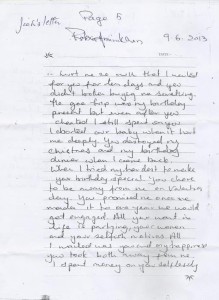 Jiah's letter Page 5
9.6.2013
it hurt me so much that I waited
for you for ten days and you
didn't bother buying me something.
The goa trip was my birthday
present but even after you
cheated I still spent on you
I aborted our baby when it hurt
me deeply. You destroyed my
christmas and my birthday
dinner when I came back.
When I tried my hardest to make
your birthday special. You chose
to be away from me on Valentines
day. You promised me once we
made it to one year we would
get engaged. All you want in
life is partying, your women
and your selfish motives. All
I wanted was you and my happiness
you took both away from me.
I spent money on you selflessly